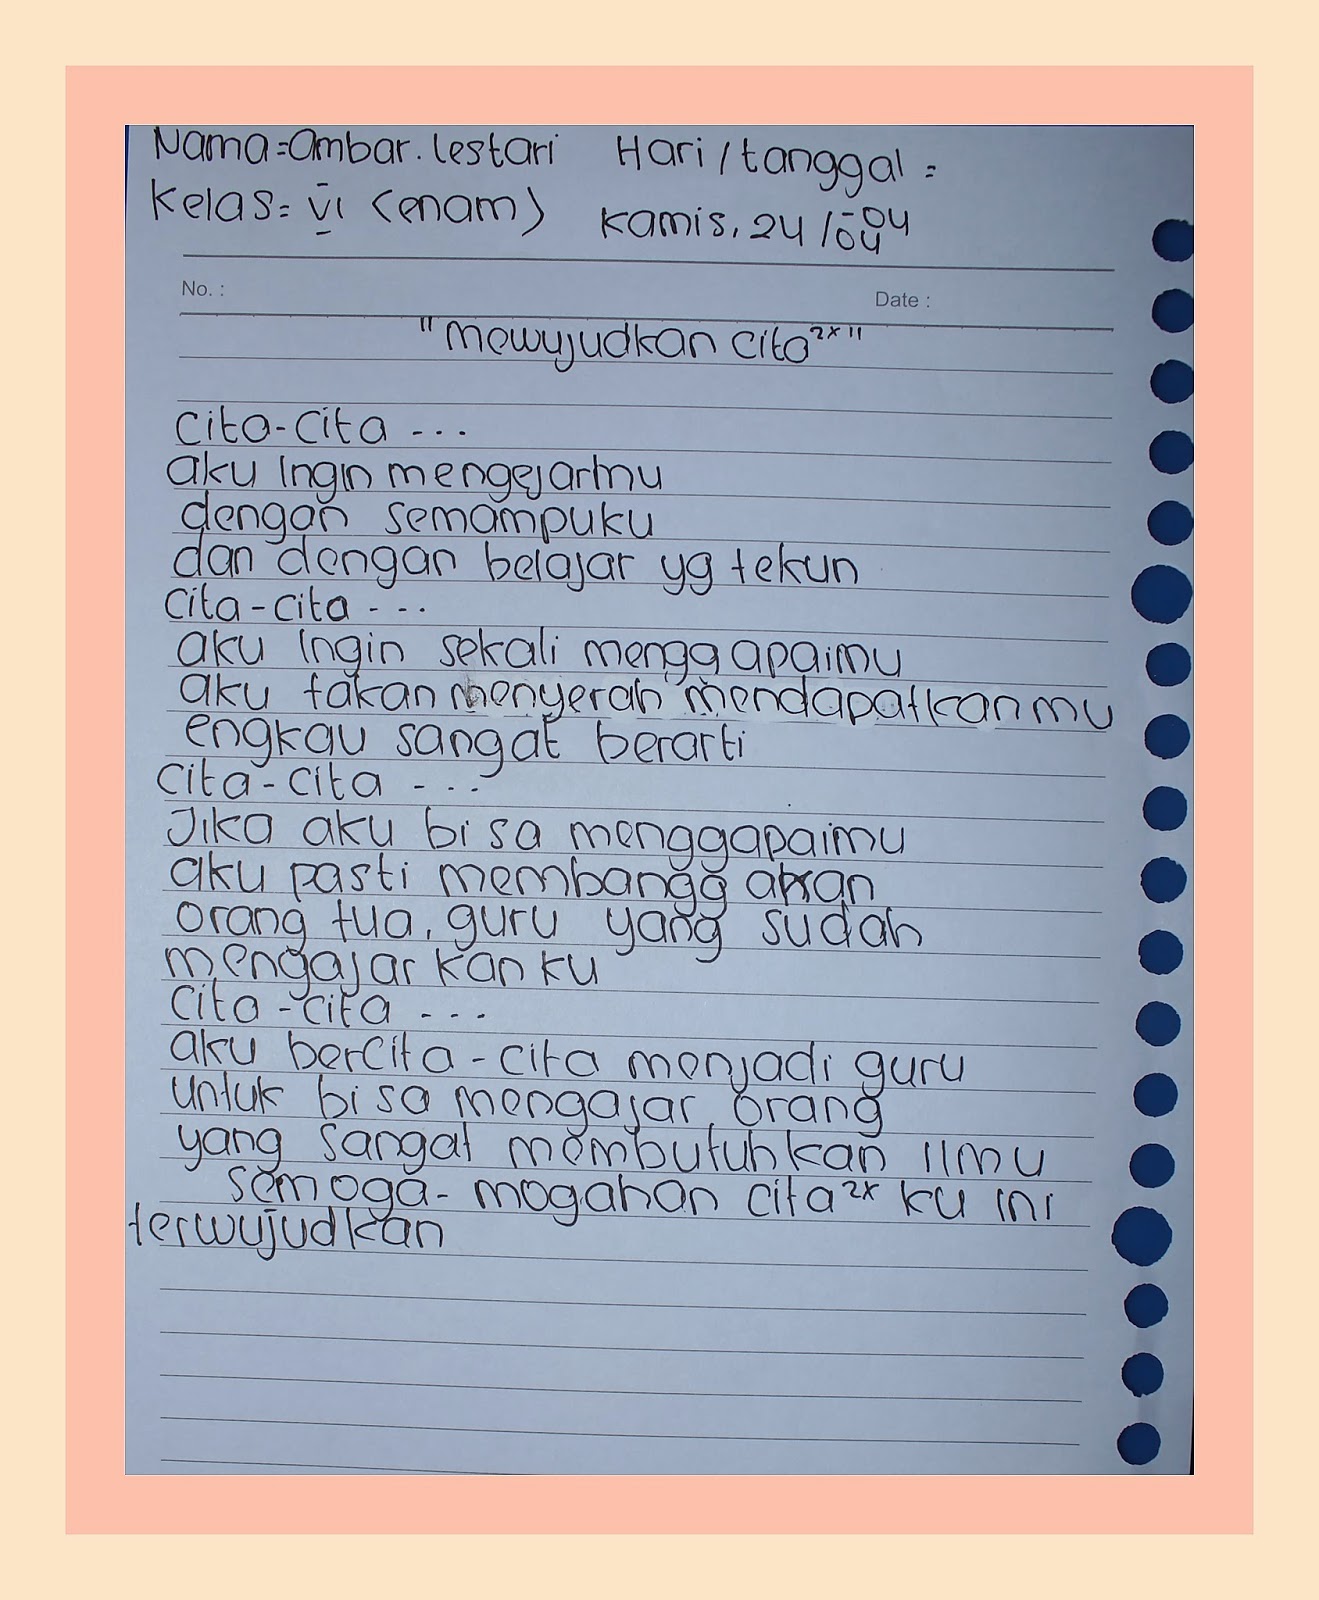 Nama=Ambar.lestari Hari/tanggal =
Kelas= VI (enam) Kamis, 24/04-04
No. : Date :
"Mewujudkan cita²ˣ"
Cita-Cita ...
aku Ingin mengejarmu
dengan semampuku
dan dengan belajar yg tekun
Cita-cita ...
aku Ingin sekali menggapaimu
aku takan menyerah mendapatkanmu
engkau sangat berarti
Cita-cita ...
Jika aku bisa menggapaimu
aku pasti membanggakan
orang tua, guru yang sudah
mengajarkanku
Cita-cita ...
aku bercita-cita menjadi guru
Untuk bisa mengajar orang
yang sangat membutuhkan Ilmu
semoga-mogahan cita²ˣ ku ini
terwujudkan